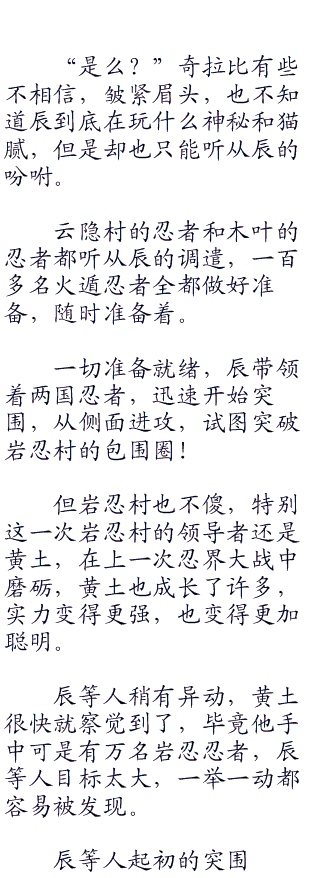 “是么？”奇拉比有些
不相信，皱紧眉头，也不知
道辰到底在玩什么神秘和猫
腻，但是却也只能听从辰的
吩咐。
云隐村的忍者和木叶的
忍者都听从辰的调遣，一百
多名火遁忍者全都做好准
备，随时准备着。
一切准备就绪，辰带领
着两国忍者，迅速开始突
围，从侧面进攻，试图突破
岩忍村的包围圈！
但岩忍村也不傻，特别
这一次岩忍村的领导者还是
黄土，在上一次忍界大战中
磨砺，黄土也成长了许多，
实力变得更强，也变得更加
聪明。
辰等人稍有异动，黄土
很快就察觉到了，毕竟他手
中可是有万名岩忍忍者，辰
等人目标太大，一举一动都
容易被发现。
辰等人起初的突围